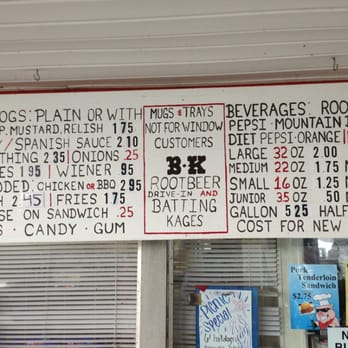 OGS: PLAIN OR WITH
P. MUSTARD. RELISH 175
/ SPANISH SAUCE 210
THING 235 ONIONS .25
IES 195 WIENER 95
DDED: CHICKEN OR BBQ 295
H 2 45 FRIES 175
SE ON SANDWICH .25
S · CANDY · GUM
MUGS & TRAYS
NOT FOR WINDOW
CUSTOMERS
B-K
ROOTBEER
DRIVE-IN AND
BATTING
KAGES
BEVERAGES: ROO
PEPSI · MOUNTAIN
DIET PEPSI · ORANGE
LARGE 32 OZ 2.00
MEDIUM 22 OZ 1.75
SMALL 16 OZ 1.25
JUNIOR 35 OZ .50
GALLON 525 HALF
COST FOR NEW
Picnic
Special
Pork
Tenderloin
Sandwich
$2.75